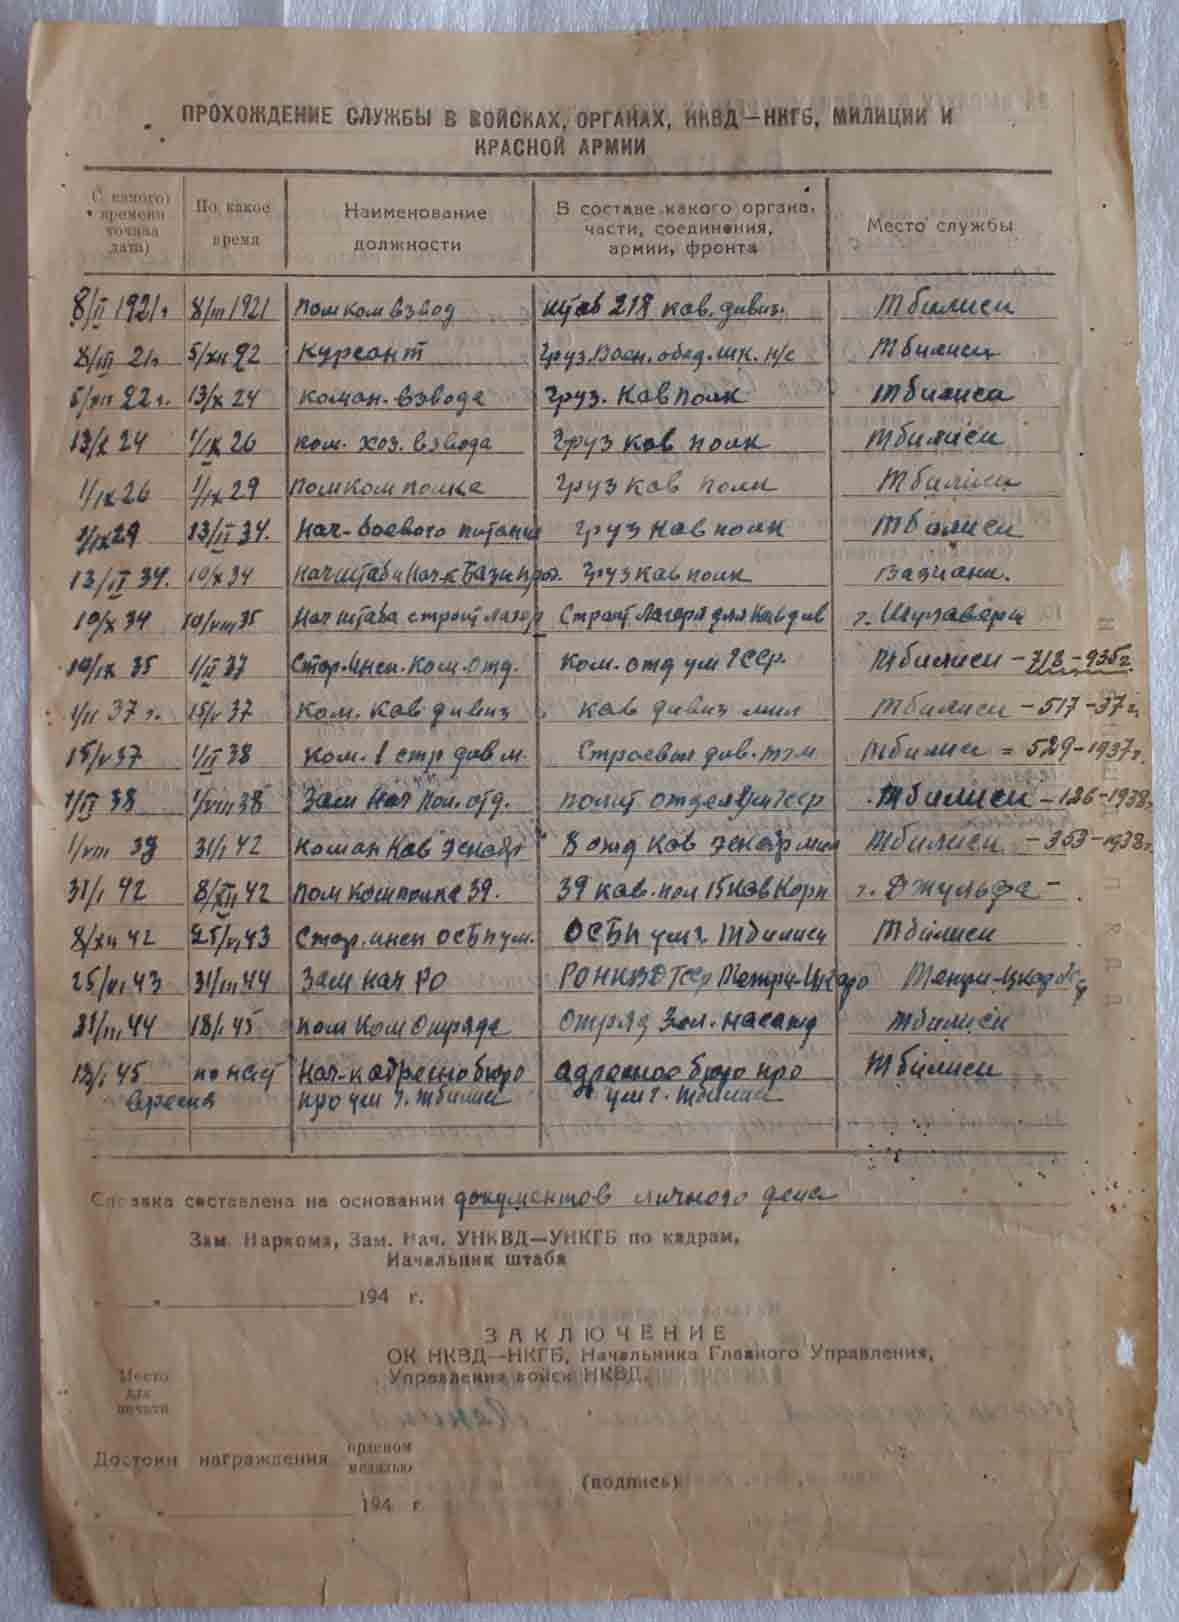 ПРОХОЖДЕНИЕ СЛУЖБЫ В ВОЙСКАХ, ОРГАНАХ, НКВД—НКГБ, МИЛИЦИИ И
КРАСНОЙ АРМИИ
С какого времени точная дата) По какое время Наименование должности В составе какого органа, части, соединения, армии, фронта Место службы
8/II 1921г 8/III 1921 Помкомвзвод штаб 218 кав. дивиз. Тбилиси
8/III 21г 5/XII 22 Курсант Груз. Воен. обед. шк. н/с Тбилиси
5/XII 22 г. 13/X 24 коман. взвода Груз. Кав полк Тбилиси
13/X 24 1/IX 26 ком. хоз. взвода Груз кав полк Тбилиси
1/IX 26 1/IX 29 помкомполка Груз кав полк Тбилиси
1/IX 29 13/II 34. Нач. боевого питания Груз кав полк Тбилиси
13/II 34. 10/X 34 Груз кав полк Вазиани.
10/X 34 10/VIII 35 Нач штаба строит лагер Строит Лагеря для Кав див г. Шулавери
10/IX 35 1/II 37 Стар. Инсп. Ком. Отд. Ком. отд ум ГССР. Тбилиси – 718 – 935г.
1/II 37 г. 15/V 37 Ком. Кав дивиз кав дивиз мил Тбилиси – 517 – 37 г.
15/V 37 1/II 38 Ком. 1 стр див м. Строевый див. Тбилиси = 529 – 1937г.
1/II 38 1/VIII 38 Зам Нач Пол. отд. полит отдел ум ГССР Тбилиси – 126 – 1938г.
1/VIII 38 31/I 42 Коман Кав Эскадр 8 отд Кав эскадр мил Тбилиси – 353 – 1938г.
31/I 42 8/XII 42 Пом комполка 39. 39 кав. пол 15 Кав Корп г. Джульфа –
8/XII 42 25/VI 43 Стар. инсп ОСБП ум. ОСБП ум г. Тбилиси Тбилиси
25/VI 43 31/III 44 Зам нач РО РО НКВД ГССР Тетри-Цкаро Тетри-Цкаро
31/III 44 18/I 45 пом Ком Отряда Отряд Зел. насажд Тбилиси
18/I 45 по наст время Нач-к адресно бюро при ум г. Тбилиси адресное бюро при ум г. Тбилиси Тбилиси
Справка составлена на основании документов личного дела
Зам. Наркома, Зам. Нач. УНКВД—УНКГБ по кадрам,
Начальник штаба
" " 194 г.
ЗАКЛЮЧЕНИЕ
ОК НКВД—НКГБ, Начальника Главного Управления,
Управления войск НКВД.
Место
для
печати
Достоин награждения орденом
медалью
(подпись)
" " 194 г.